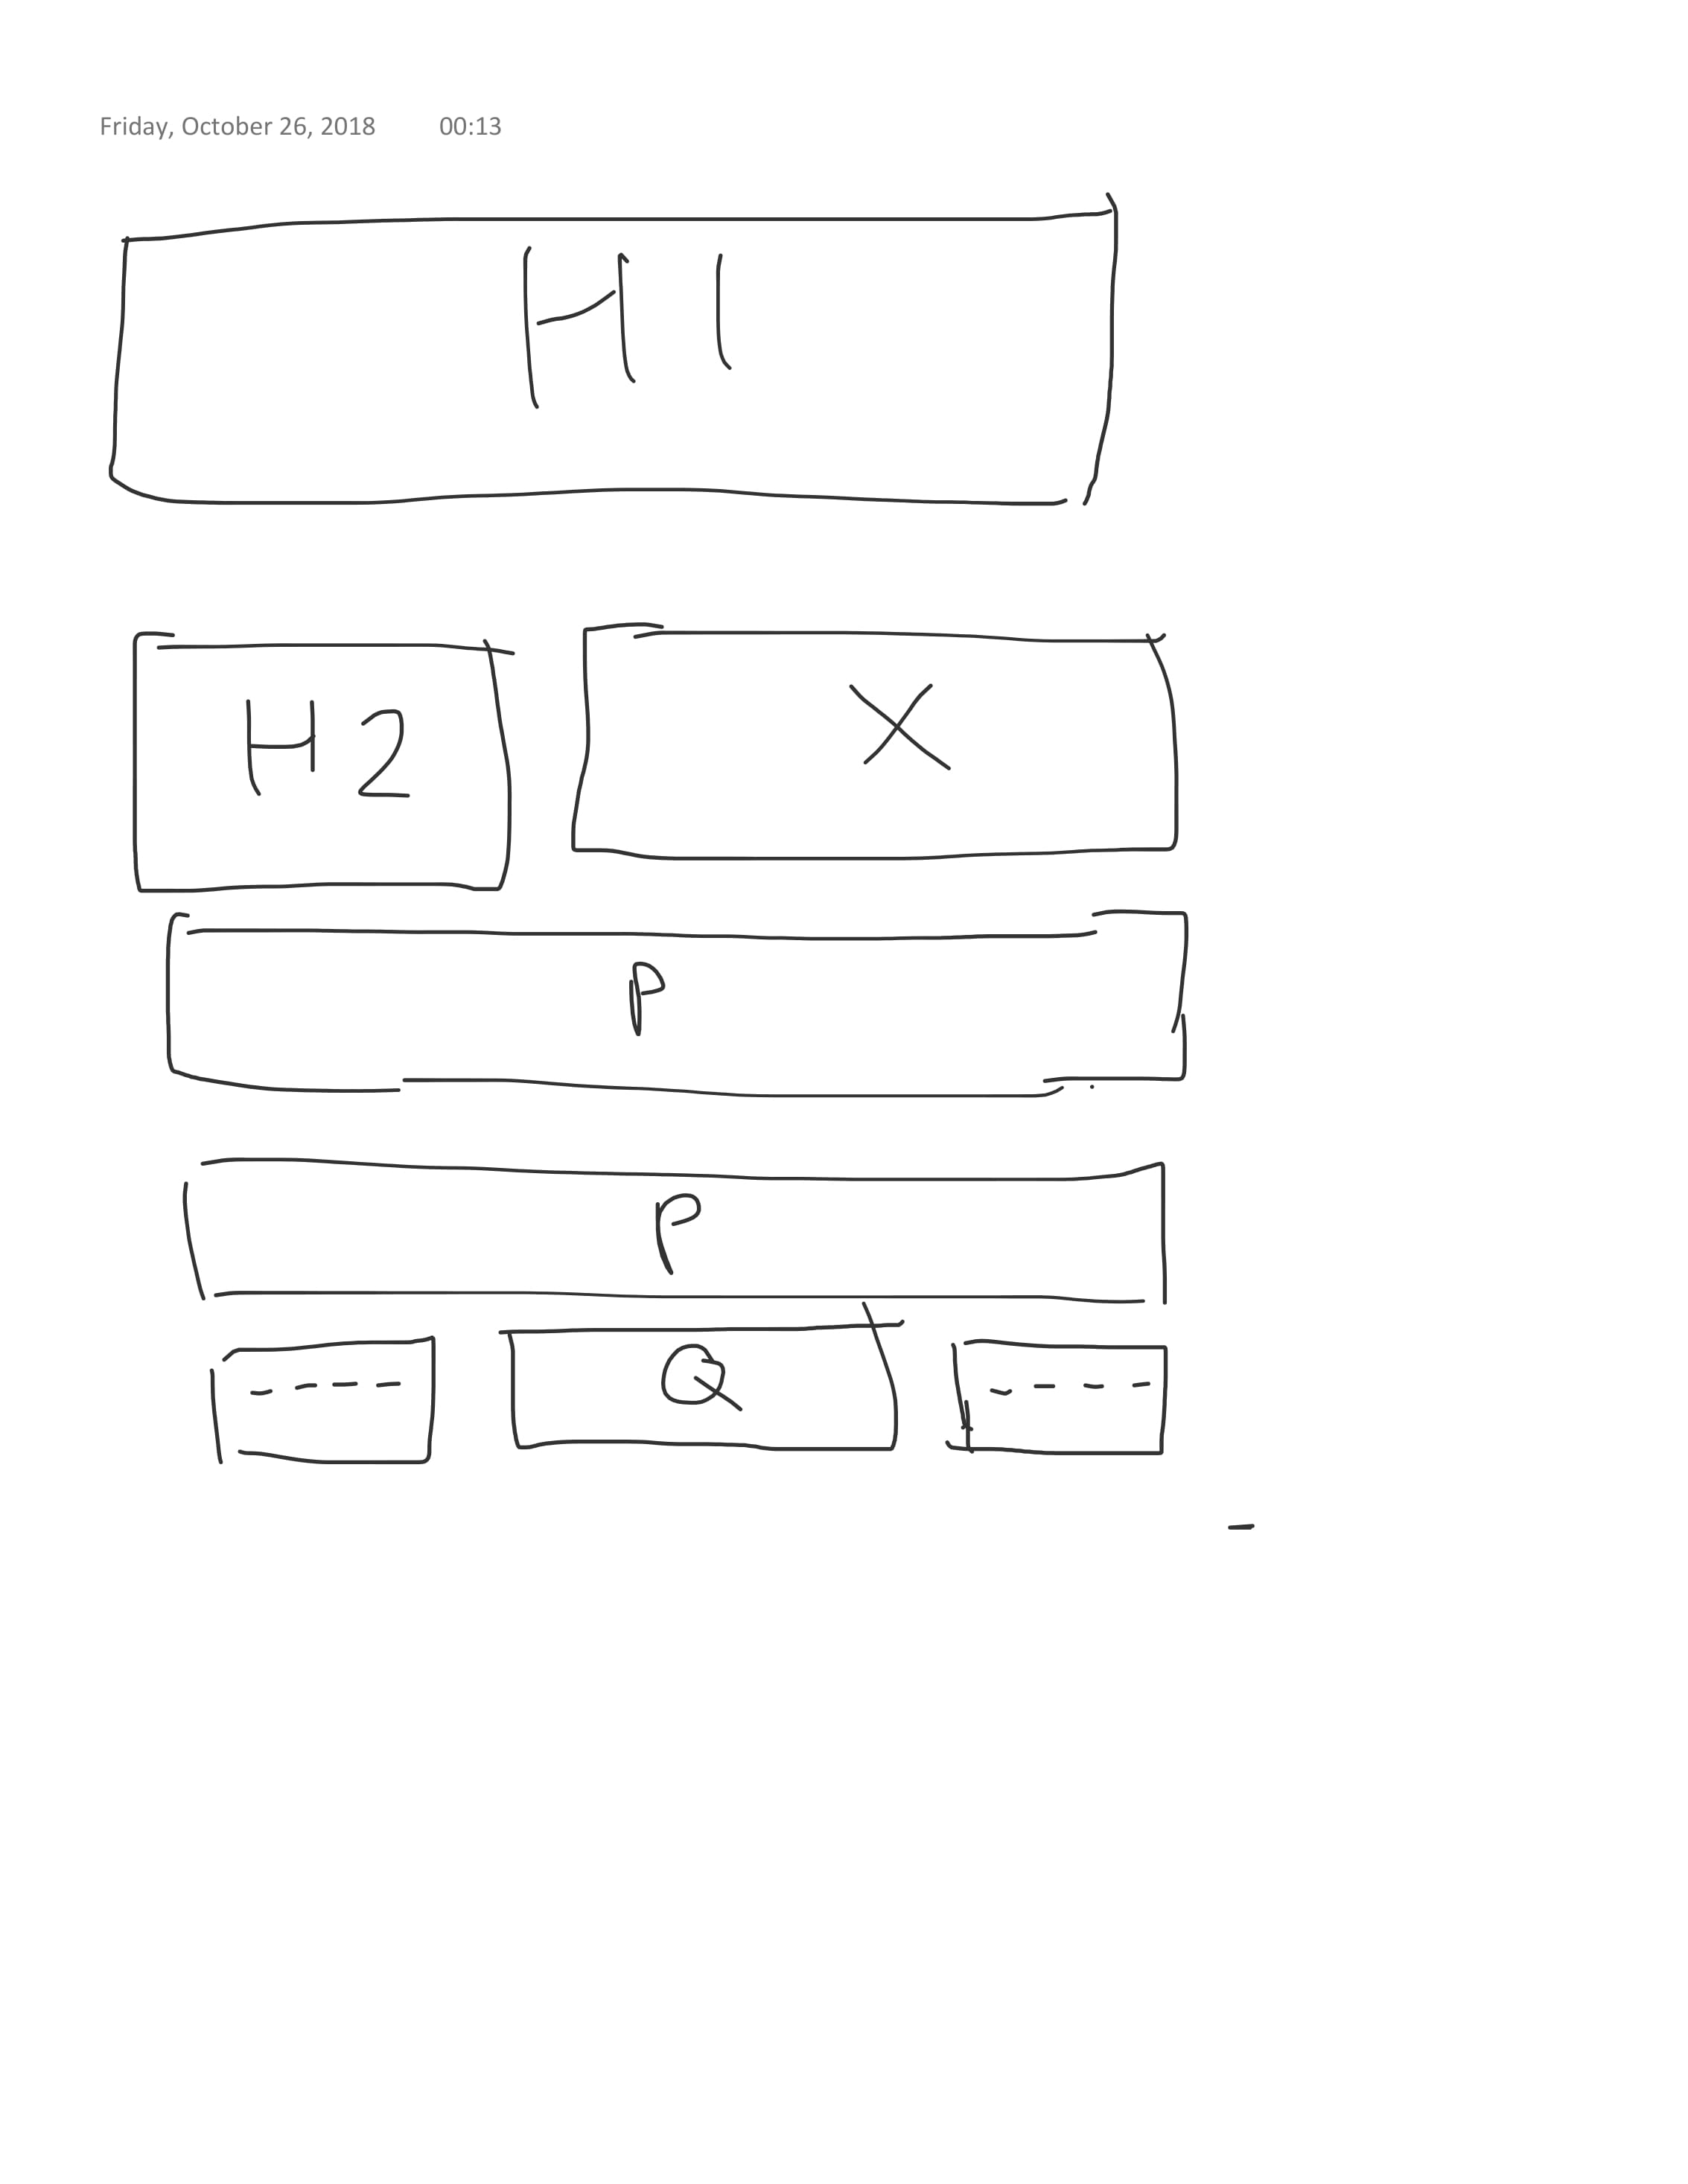 Friday, October 26, 2018 00:13
H1
H2 X
P
P
---- Q ----